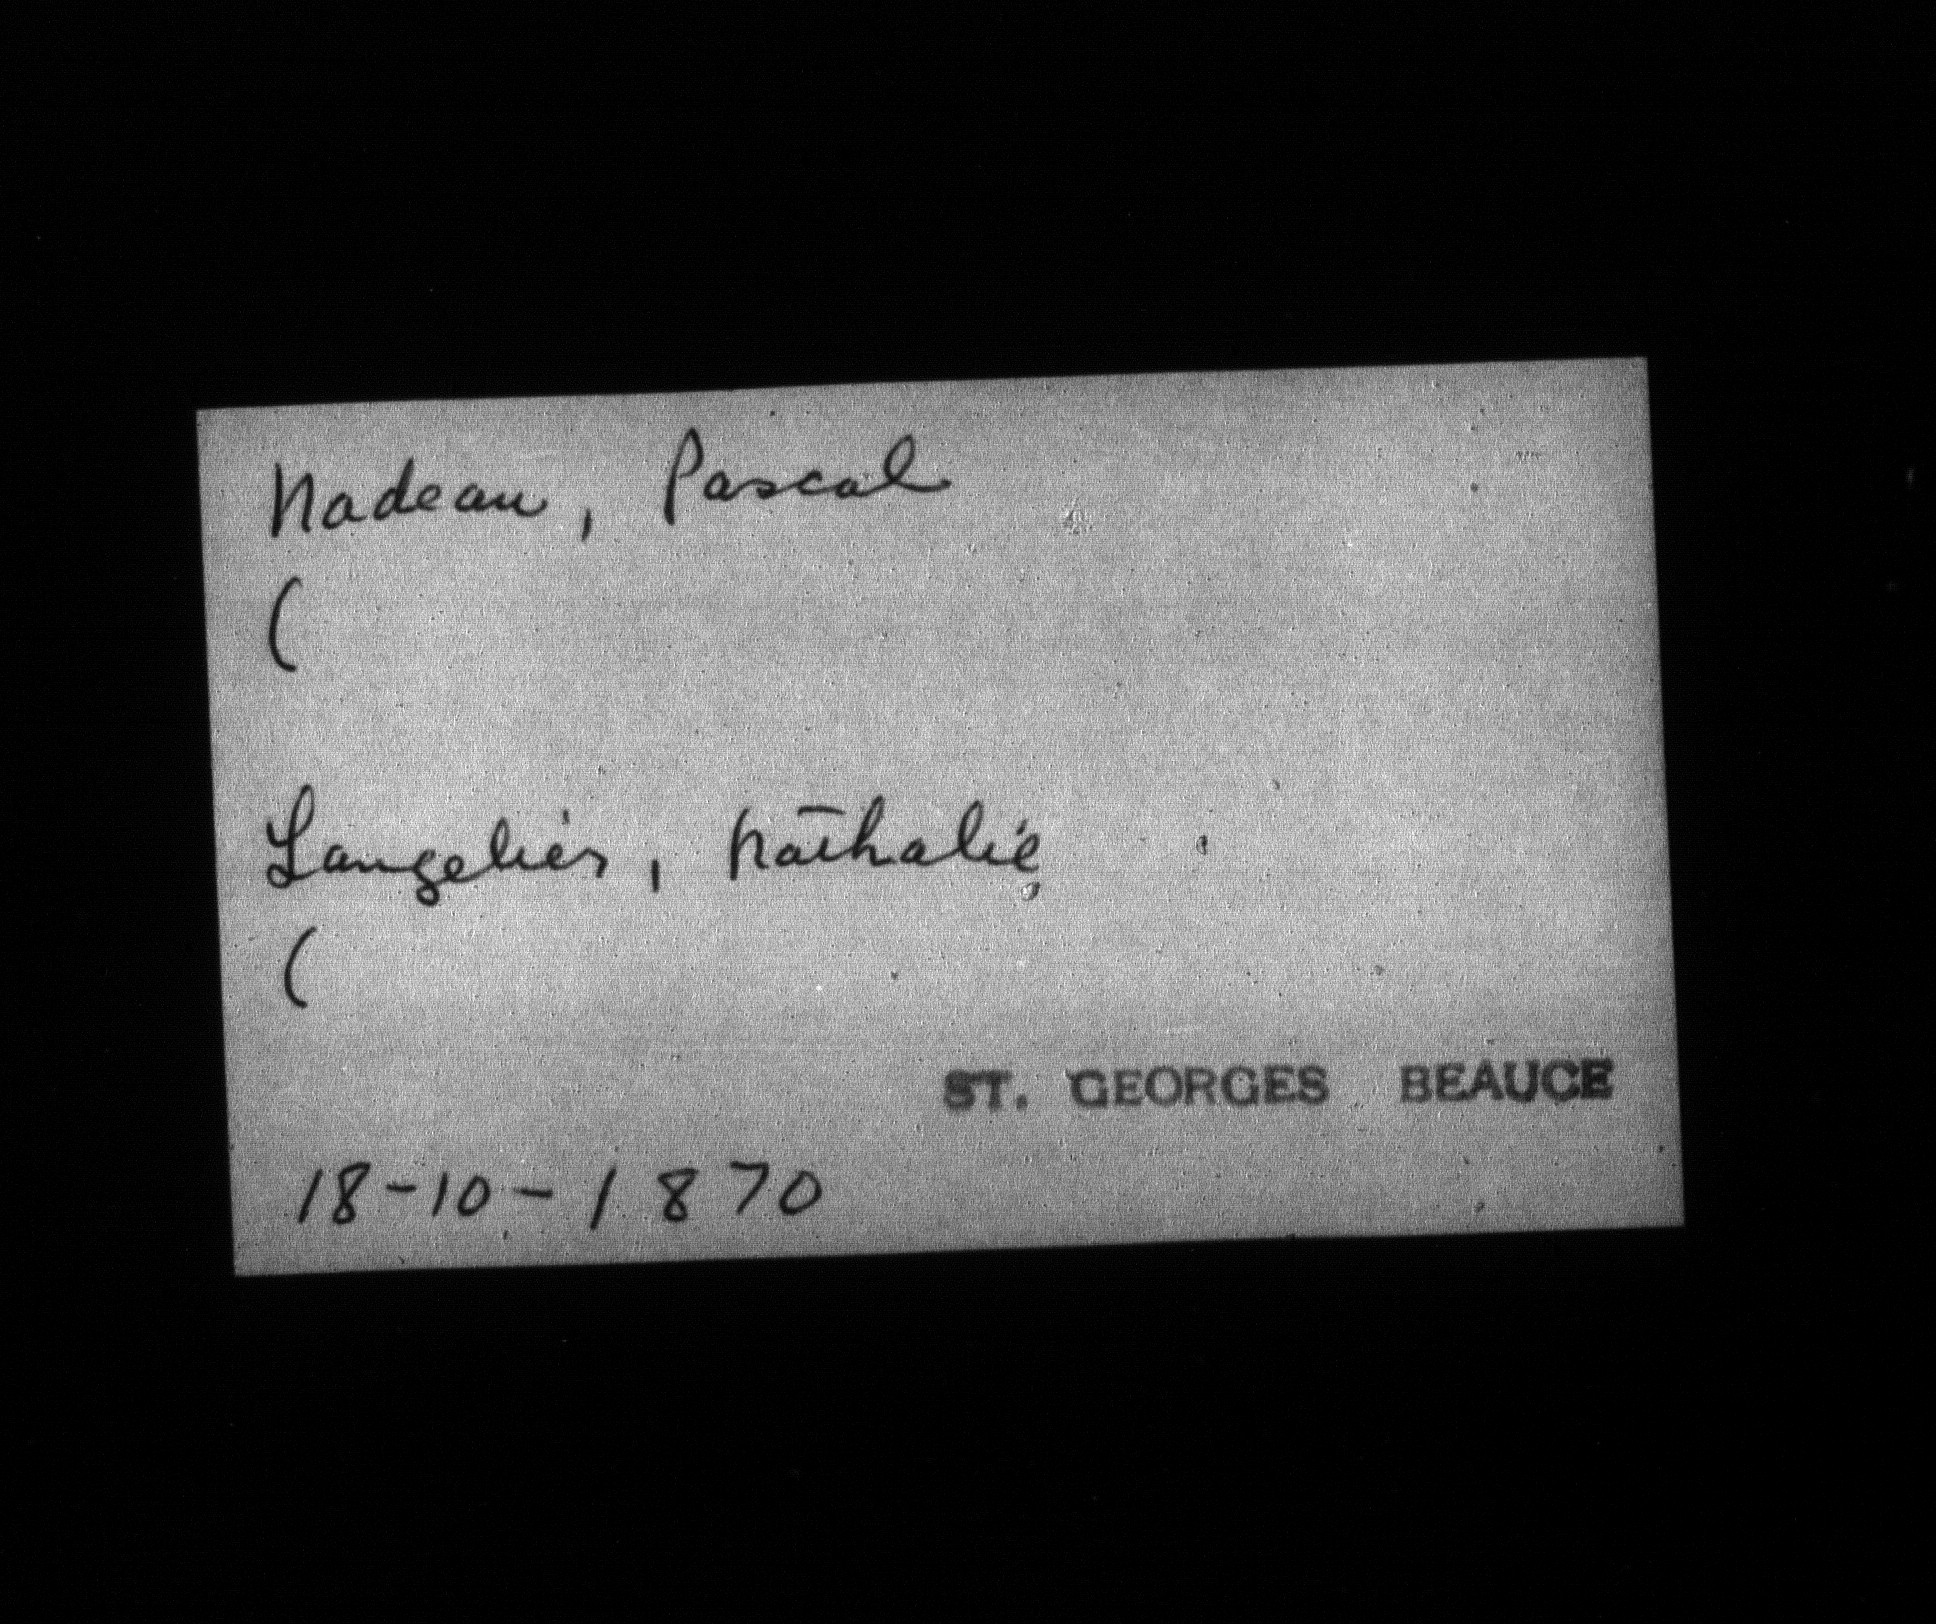 Nadeau, Pascal
(
Langelier, Nathalie
(
ST. GEORGES BEAUCE
18-10-1870